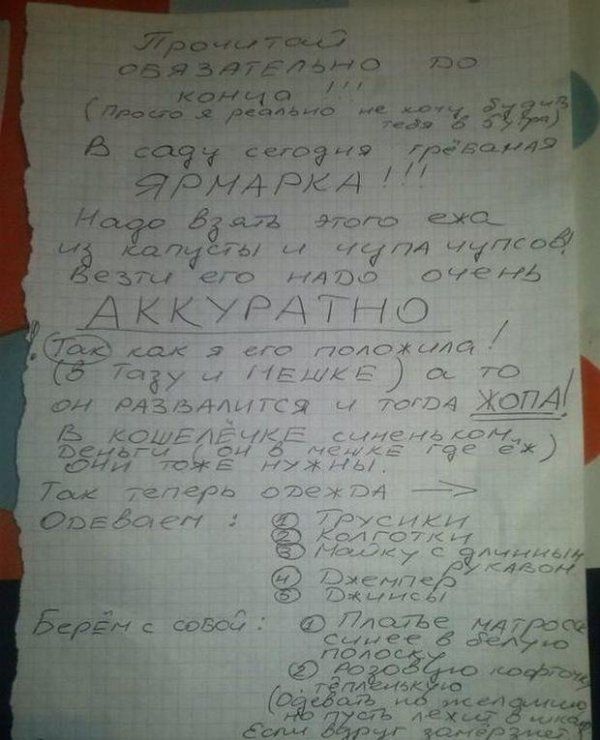 Прочитай
ОБЯЗАТЕЛЬНО ДО
конца !!!
(Просто я реально не хочу будить
тебя в 6 утра)
В саду сегодня грёбаная
ЯРМАРКА!!!
Надо взять этого ежа
из капусты и чупа чупсов!
Везти его НАДО очень
АККУРАТНО
! Так как я его положила!
(В Тазу и МЕШКЕ) а то
он РАЗВАЛИТСЯ и тогда ЖОПА!
В КОШЕЛЁЧКЕ синеньком
Деньги (он в мешке где ёж)
они тоже нужны.
Так теперь одежда →
Одеваем: 1 Трусики
2 Колготки
3 Майку с длинным
рукавом
4 Джемпер
5 Джинсы
Берём с собой: 1 Платье матроса
синее в белую
полоску
2 розовую кофточку
тёпленькую
(Одевать по желанию
но пусть лежит в шкаф
Если вдруг замёрзнет